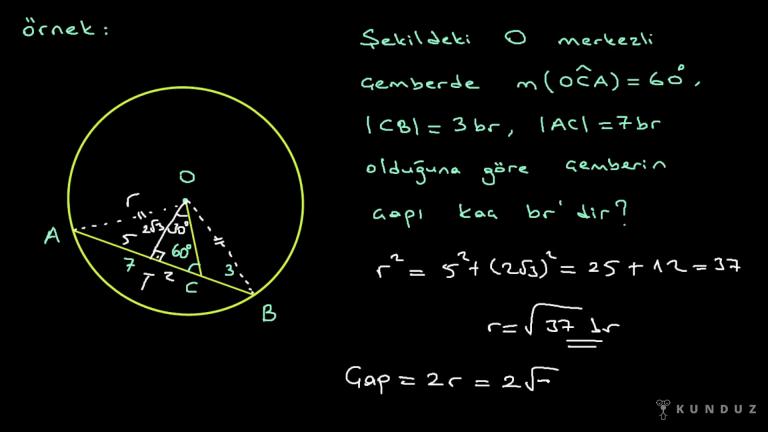 örnek:
Şekildeki O merkezli
çemberde m(OĈA) = 60°,
|CB| = 3br, |AC| = 7br
olduğuna göre çemberin
çapı kaç br'dir?
O
r
A
5
2√3
30°
60°
7
T
2
C
3
B
r² = 5² + (2√3)² = 25 + 12 = 37
r = √37 br
Çap = 2r = 2√
KUNDUZ